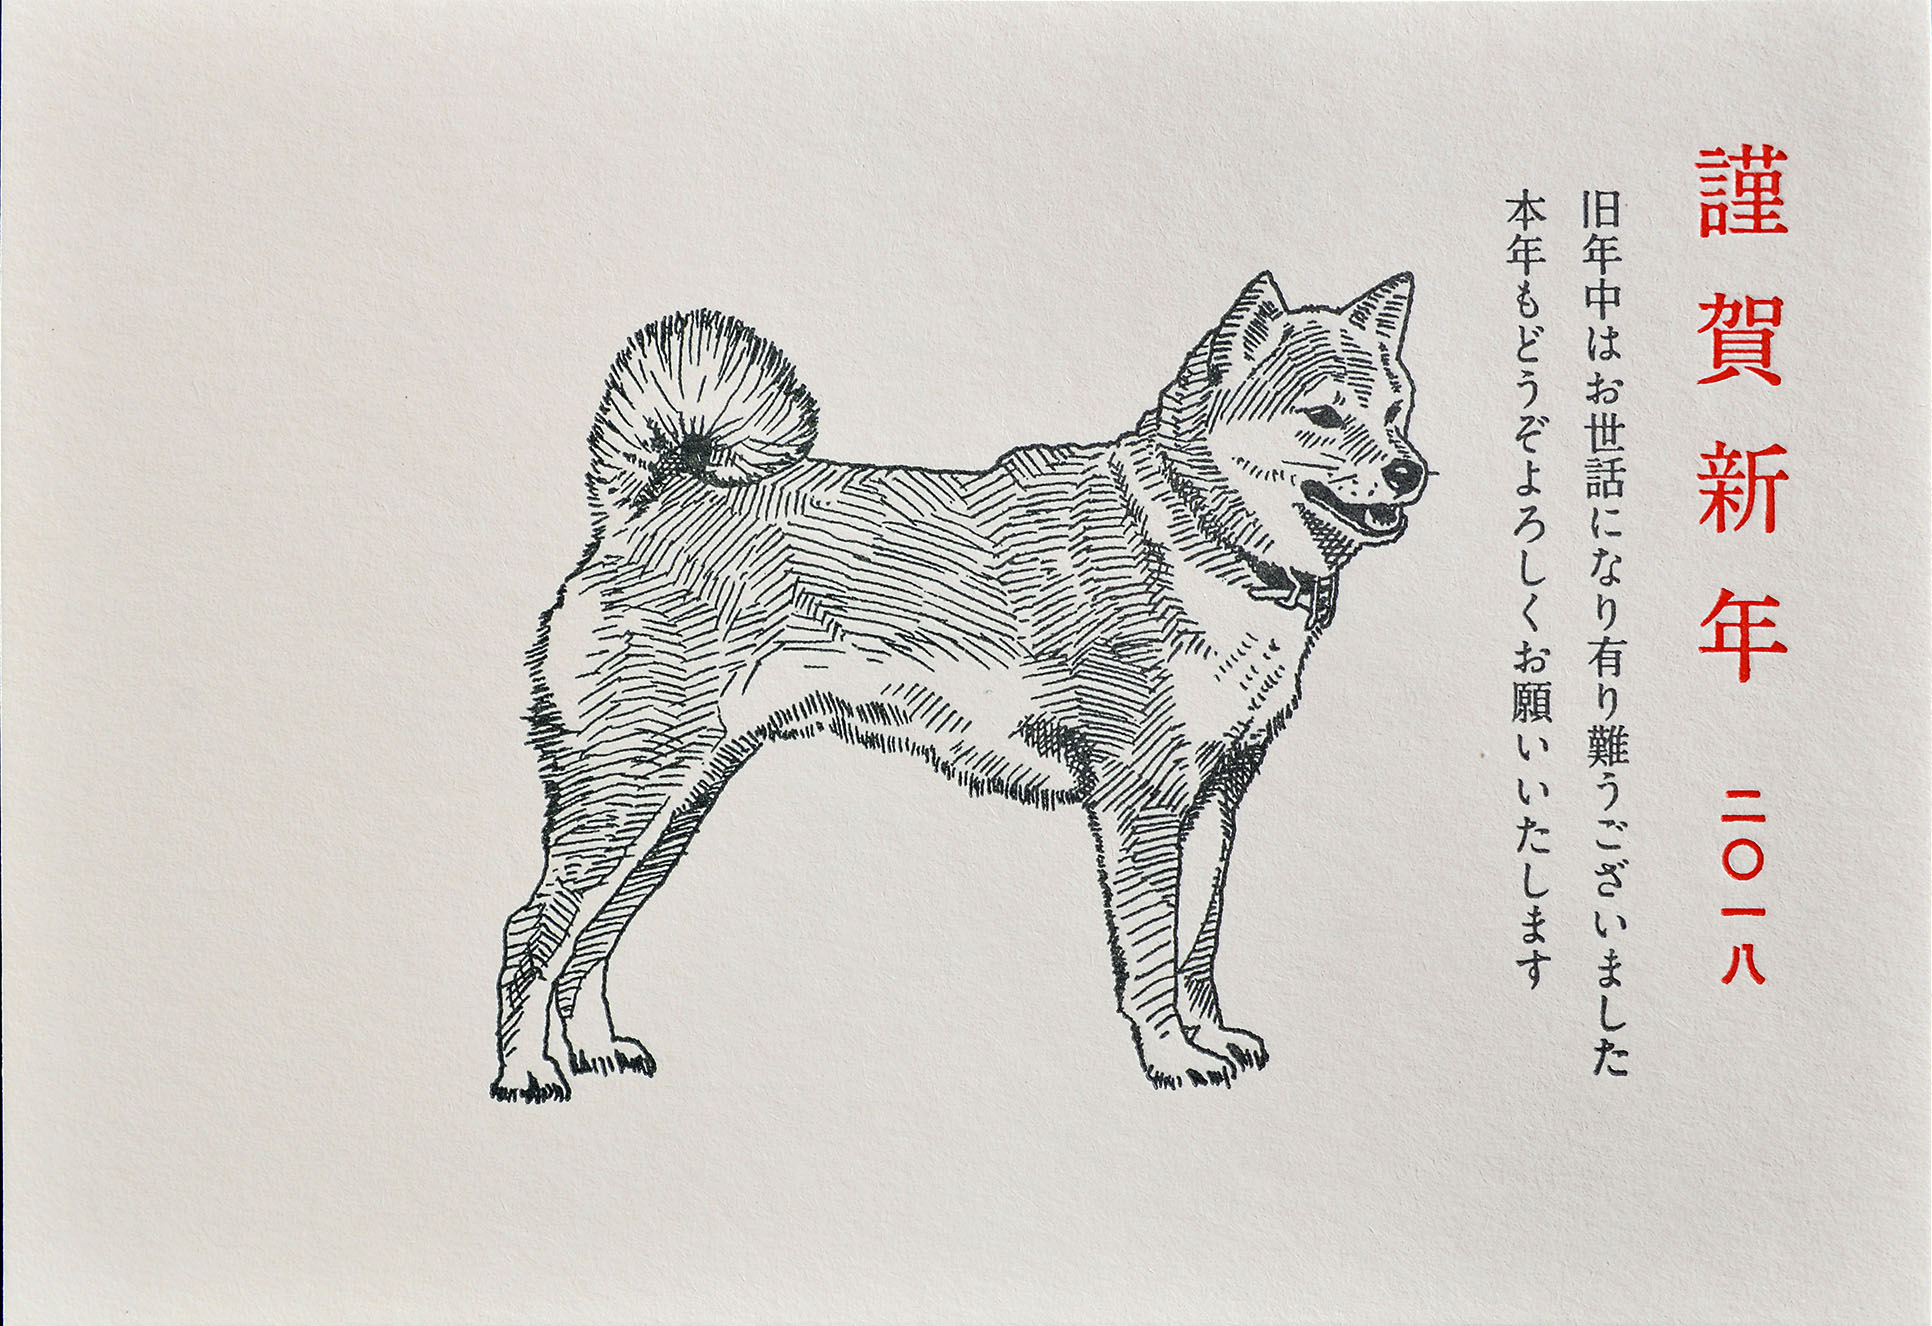 謹賀新年 二〇一八
旧年中はお世話になり有り難うございました
本年もどうぞよろしくお願いいたします